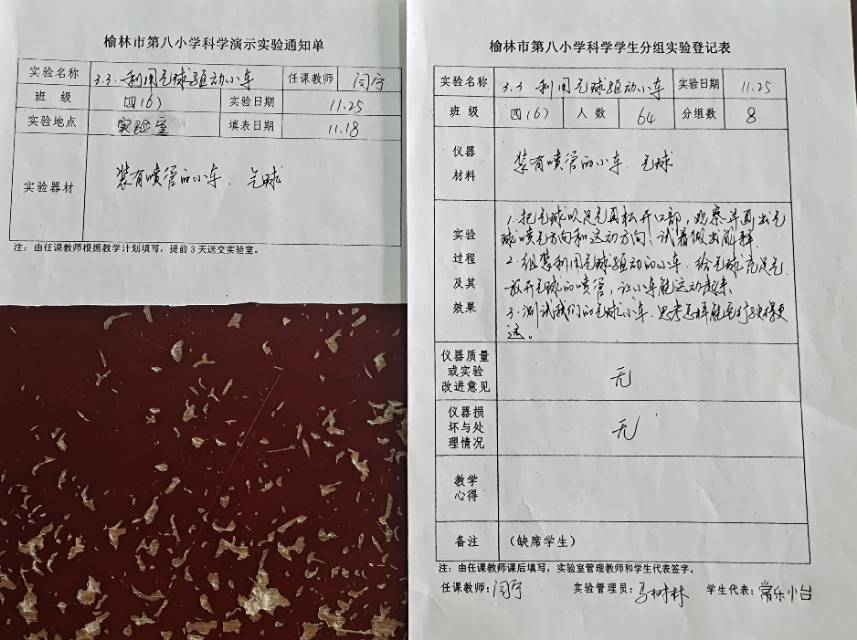 榆林市第八小学科学演示实验通知单
实验名称 3.3 利用气球驱动小车 任课教师 闫宁
班 级 四(6) 实验日期 11.25
实验地点 实验室 填表日期 11.18
实验器材 装有喷管的小车、气球
注:由任课教师根据教学计划填写,提前3天送交实验室。
榆林市第八小学科学学生分组实验登记表
实验名称 3.3 利用气球驱动小车 实验日期 11.25
班 级 四(6) 人 数 64 分组数 8
仪器
材料
装有喷管的小车、气球
实验
过程
及其
效果
1.把气球吹足气再松开口部,观察并画出气
球喷气方向和运动方向,试着做出解释.
2.组装利用气球驱动的小车.给气球充足气
放开气球的喷管,让小车能运动起来.
3.测试我们的气球小车.思考怎样能运行
更
远。
仪器质量
或实验
改进意见
无
仪器损
坏与处
理情况
无
教学
心得
备注 (缺席学生)
注:由任课教师课后填写,实验室管理教师和学生代表签字。
任课教师:闫宁 实验管理员:马树林 学生代表:常乐